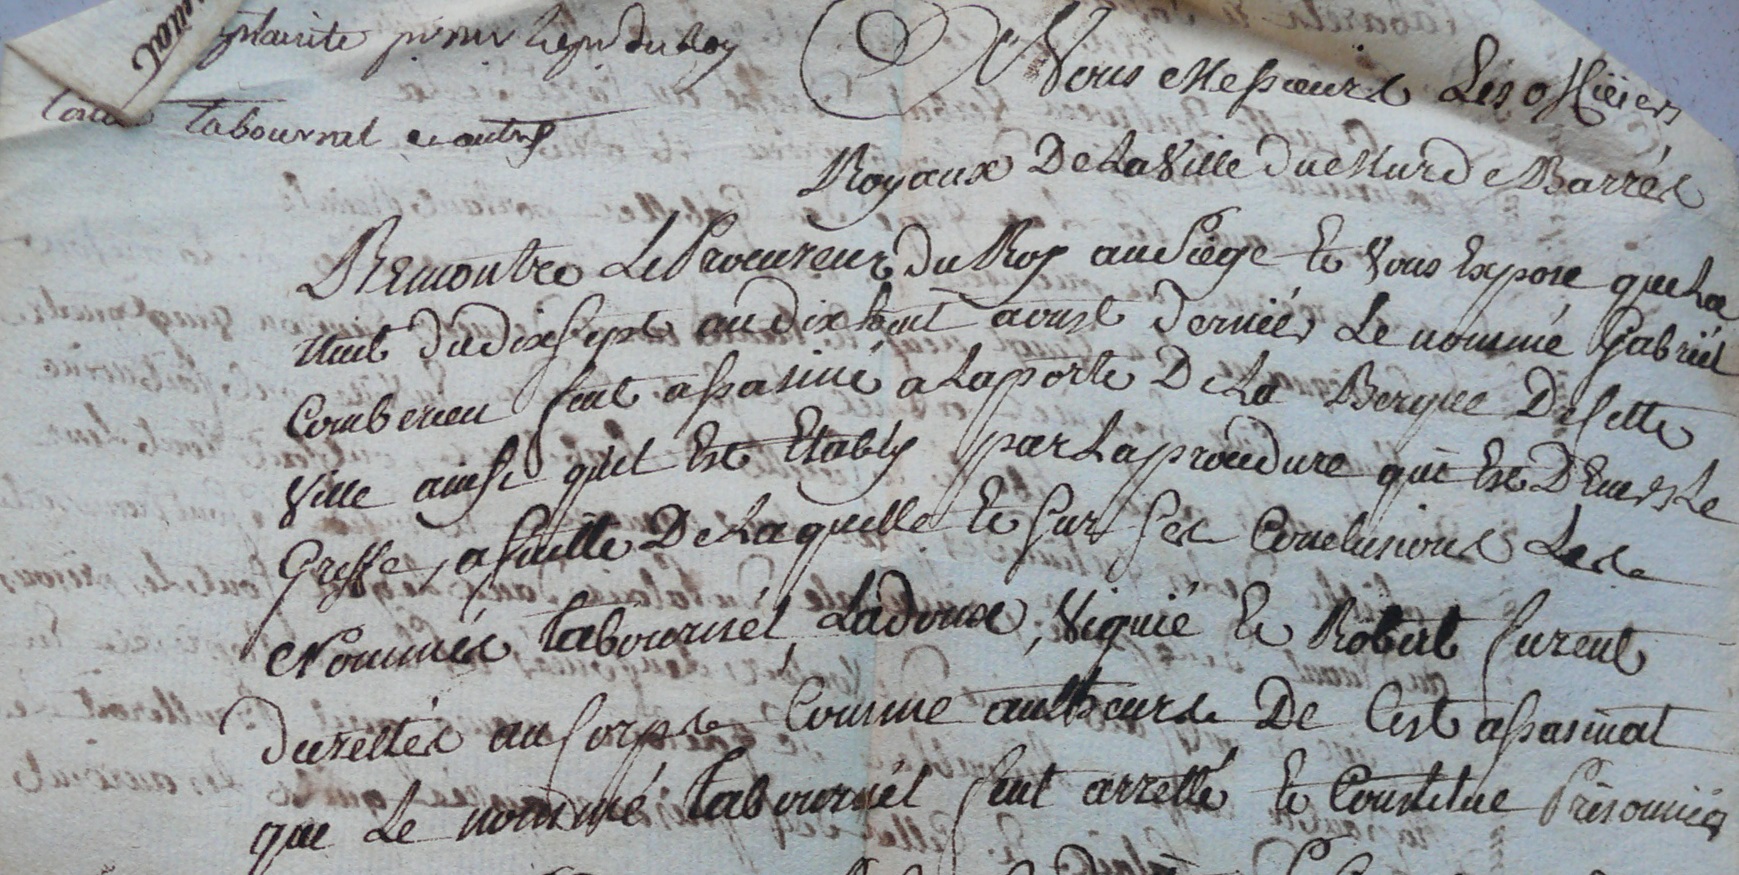 plainte pour le pr du Roy
contre tabournel et autres
A Vous Messieurs Les officiers
Royaux De La Ville du Mur de Barrés
Remontre Le Procureur du Roy au siege Et Vous Expose que La
nuit du dix sept au dix huit avust dernier Le nommé Gabriël
fut assasiné a La porte De La Bergue De cette
Ville ainsi qu'il Est Etably par La procedure qui Est D'Evers Le
Greffe, a suitte De Laquelle Et sur ses Conclusions Les
Nommés tabournel, Ladoux, Viguié Et Robert furent
decrettés au Corps Comme autheurs De Cest assasinat
que Le nommé tabournel fut arretté Et Constitue Prisonnier